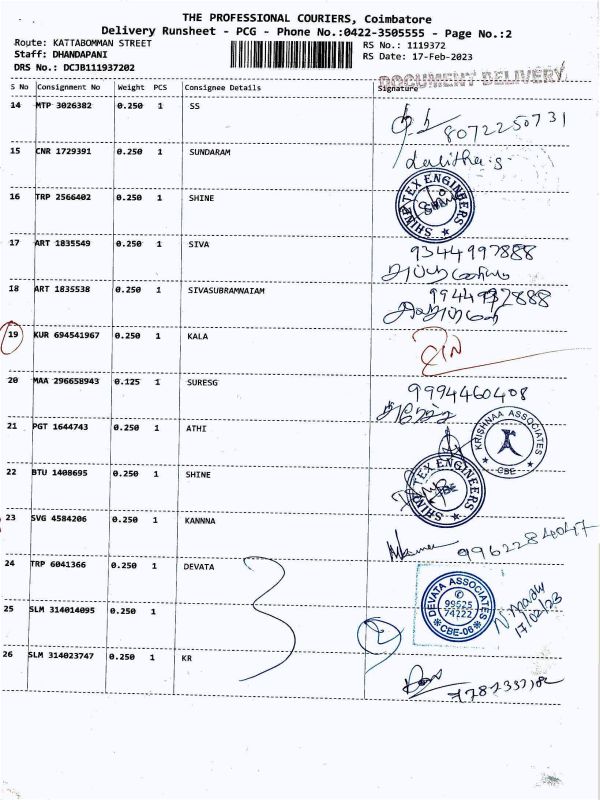 THE PROFESSIONAL COURIERS, Coimbatore
Delivery Runsheet - PCG - Phone No.:0422-3505555 - Page No.:2
Route: KATTABOMMAN STREET
RS No.: 1119372
Staff: DHANDAPANI
RS Date: 17-Feb-2023
DRS No.: DCJB111937202
DOCUMENT DELIVERY
S No Consignment No Weight PCS Consignee Details Signature
14 MTP 3026382 0.250 1 SS
8072250731
15 CNR 1729391 0.250 1 SUNDARAM
Lalitha.s
16 TRP 2566402 0.250 1 SHINE
TEX ENGINEERS
17 ART 1835549 0.250 1 SIVA
9344997888
18 ART 1835538 0.250 1 SIVASUBRAMNAIAM
19 KUR 694541967 0.250 1 KALA
20 MAA 296658943 0.125 1 SURESG
9994460408
21 PGT 1644743 0.250 1 ATHI
KRISHNAA ASSOCIATES
CBE
22 BTU 1408695 0.250 1 SHINE
SHINE TEX ENGINEERS
23 SVG 4584206 0.250 1 KANNNA
9962284047
24 TRP 6041366 0.250 1 DEVATA
DEVATA ASSOCIATES
99525
74222
CBE-06
17/02/23
25 SLM 314014095 0.250 1
26 SLM 314023747 0.250 1 KR